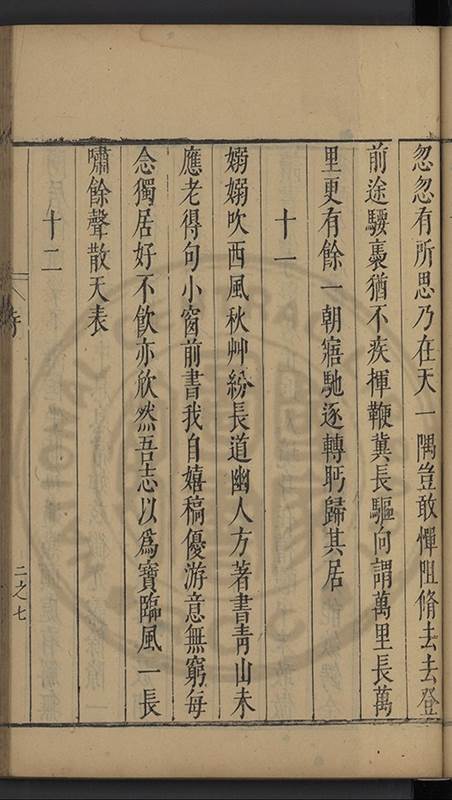 忽忽有所思乃在天一隅豈敢憚阻脩去去登
前途騕褭猶不疾揮鞭冀長驅向謂萬里長萬
里更有餘一朝寤馳逐轉眄歸其居
十一
嫋嫋吹西風秋艸紛長道幽人方著書青山未
應老得句小窗前書我自嬉稿優游意無窮每
念獨居好不飲亦欣然吾志以爲寶臨風一長
嘯餘聲散天表
十二
二之七